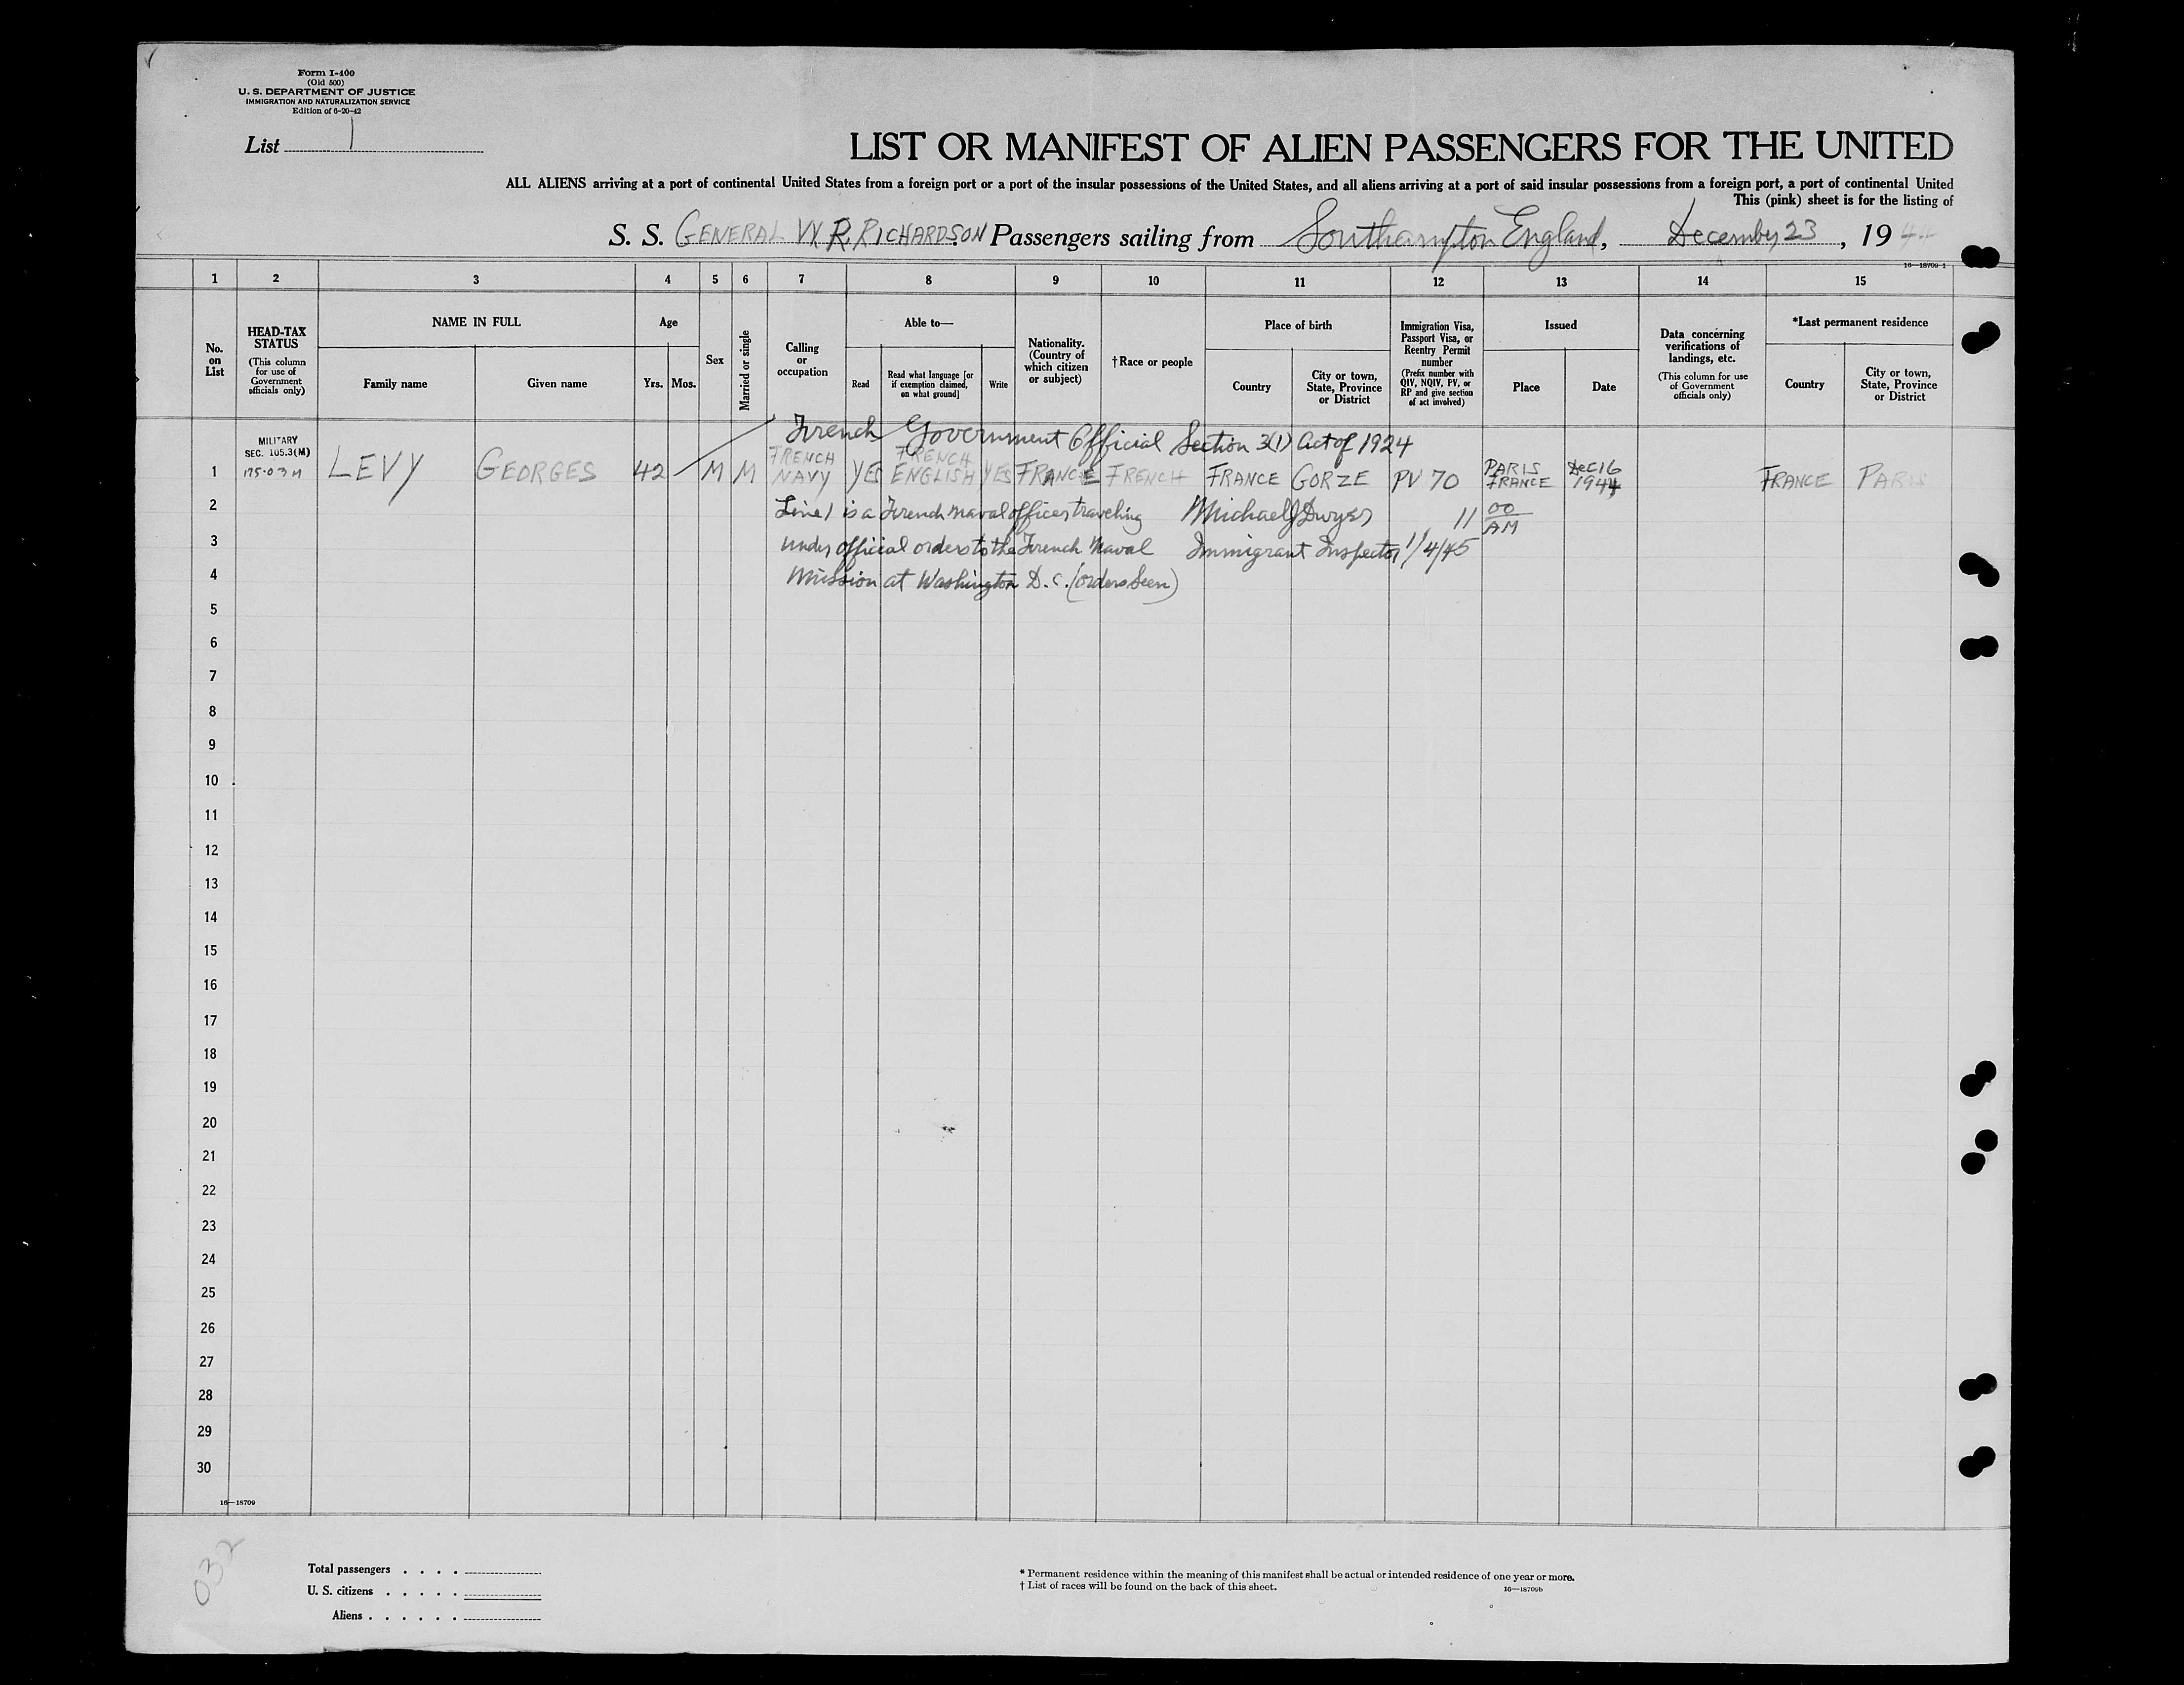 Form I-400
(Old 500)
U. S. DEPARTMENT OF JUSTICE
IMMIGRATION AND NATURALIZATION SERVICE
Edition of 6-20-42
List 1
LIST OR MANIFEST OF ALIEN PASSENGERS FOR THE UNITED
ALL ALIENS arriving at a port of continental United States from a foreign port or a port of the insular possessions of the United States, and all aliens arriving at a port of said insular possessions from a foreign port, a port of continental United
This (pink) sheet is for the listing of
S. S. GENERAL W R RICHARDSON Passengers sailing from Southampton England, December 23, 194
16—18709-1
1 2 3 4 5 6 7 8 9 10 11 12 13 14 15
No. on List
HEAD-TAX STATUS
(This column for use of Government officials only)
NAME IN FULL
Family name
Given name
Age
Yrs. Mos.
Sex
Married or single
Calling or occupation
Able to—
Read
Read what language [or if exemption claimed, on what ground]
Write
Nationality. (Country of which citizen or subject)
†Race or people
Place of birth
Country
City or town, State, Province or District
Immigration Visa, Passport Visa, or Reentry Permit number
(Prefix number with QIV, NQIV, PV, or RP and give section of act involved)
Issued
Place
Date
Data concerning verifications of landings, etc.
(This column for use of Government officials only)
*Last permanent residence
Country
City or town, State, Province or District
French Government Official Section 3(1) Act of 1924
MILITARY
SEC. 105.3(M)
175.03 M
1 LEVY GEORGES 42 M M FRENCH NAVY YES FRENCH ENGLISH YES FRANCE FRENCH FRANCE GORZE PV 70 PARIS FRANCE Dec 16 1944 FRANCE PARIS
2 Line 1 is a French naval officer traveling Michael J Dwyer 11 00 AM
3 under official orders to the French Naval Immigrant Inspector 1/4/45
4 Mission at Washington D.C. (orders seen)
5
6
7
8
9
10
11
12
13
14
15
16
17
18
19
20
21
22
23
24
25
26
27
28
29
30
16—18709
032
Total passengers . . . .
U. S. citizens . . . . .
Aliens . . . . . .
* Permanent residence within the meaning of this manifest shall be actual or intended residence of one year or more.
† List of races will be found on the back of this sheet.
16—18709b